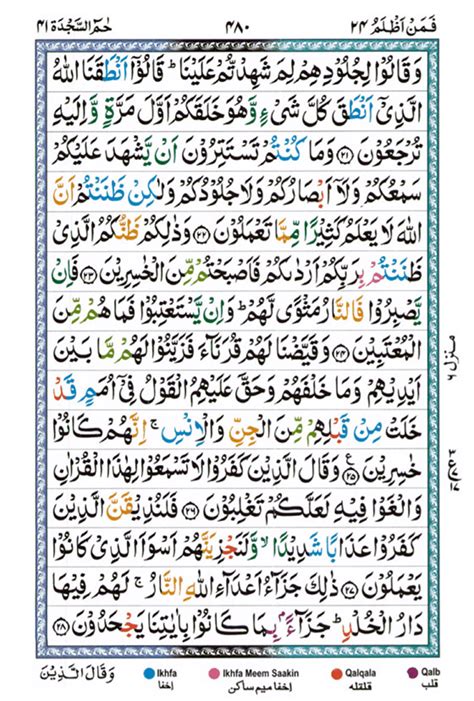 فَمَنْ اَظْلَمُ ٢٤ ٤٨٠ حٰمٓ السَّجْدَة ٤١
وَقَالُوْا لِجُلُوْدِهِمْ لِمَ شَهِدْتُّمْ عَلَيْنَا ؕ قَالُوْۤا اَنْطَقَنَا اللّٰهُ
الَّذِيْۤ اَنْطَقَ كُلَّ شَيْءٍ وَّهُوَ خَلَقَكُمْ اَوَّلَ مَرَّةٍ وَّاِلَيْهِ
تُرْجَعُوْنَ ﴿٢١﴾ وَمَا كُنْتُمْ تَسْتَتِرُوْنَ اَنْ يَّشْهَدَ عَلَيْكُمْ
سَمْعُكُمْ وَلَاۤ اَبْصَارُكُمْ وَلَا جُلُوْدُكُمْ وَلٰكِنْ ظَنَنْتُمْ اَنَّ
اللّٰهَ لَا يَعْلَمُ كَثِيْرًا مِّمَّا تَعْمَلُوْنَ ﴿٢٢﴾ وَذٰلِكُمْ ظَنُّكُمُ الَّذِيْ
ظَنَنْتُمْ بِرَبِّكُمْ اَرْدٰىكُمْ فَاَصْبَحْتُمْ مِّنَ الْخٰسِرِيْنَ ﴿٢٣﴾ فَاِنْ
يَّصْبِرُوْا فَالنَّارُ مَثْوًى لَّهُمْ ؕ وَاِنْ يَّسْتَعْتِبُوْا فَمَا هُمْ مِّنَ
الْمُعْتَبِيْنَ ﴿٢٤﴾ وَقَيَّضْنَا لَهُمْ قُرَنَآءَ فَزَيَّنُوْا لَهُمْ مَّا بَيْنَ
اَيْدِيْهِمْ وَمَا خَلْفَهُمْ وَحَقَّ عَلَيْهِمُ الْقَوْلُ فِيْۤ اُمَمٍ قَدْ
خَلَتْ مِنْ قَبْلِهِمْ مِّنَ الْجِنِّ وَالْاِنْسِ ۚ اِنَّهُمْ كَانُوْا
خٰسِرِيْنَ ﴿٢٥﴾ وَقَالَ الَّذِيْنَ كَفَرُوْا لَا تَسْمَعُوْا لِهٰذَا الْقُرْاٰنِ
وَالْغَوْا فِيْهِ لَعَلَّكُمْ تَغْلِبُوْنَ ﴿٢٦﴾ فَلَنُذِيْقَنَّ الَّذِيْنَ
كَفَرُوْا عَذَابًا شَدِيْدًا ۙ وَّلَنَجْزِيَنَّهُمْ اَسْوَاَ الَّذِيْ كَانُوْا
يَعْمَلُوْنَ ﴿٢٧﴾ ذٰلِكَ جَزَآءُ اَعْدَآءِ اللّٰهِ النَّارُ ۚ لَهُمْ فِيْهَا
دَارُ الْخُلْدِ ؕ جَزَآءًۢ بِمَا كَانُوْا بِاٰيٰتِنَا يَجْحَدُوْنَ ﴿٢٨﴾
منزل ٦
وَقَالَ الَّذِيْنَ
Ikhfa اخفا
Ikhfa Meem Saakin اخفا میم ساکن
Qalqala قلقله
Qalb قلب